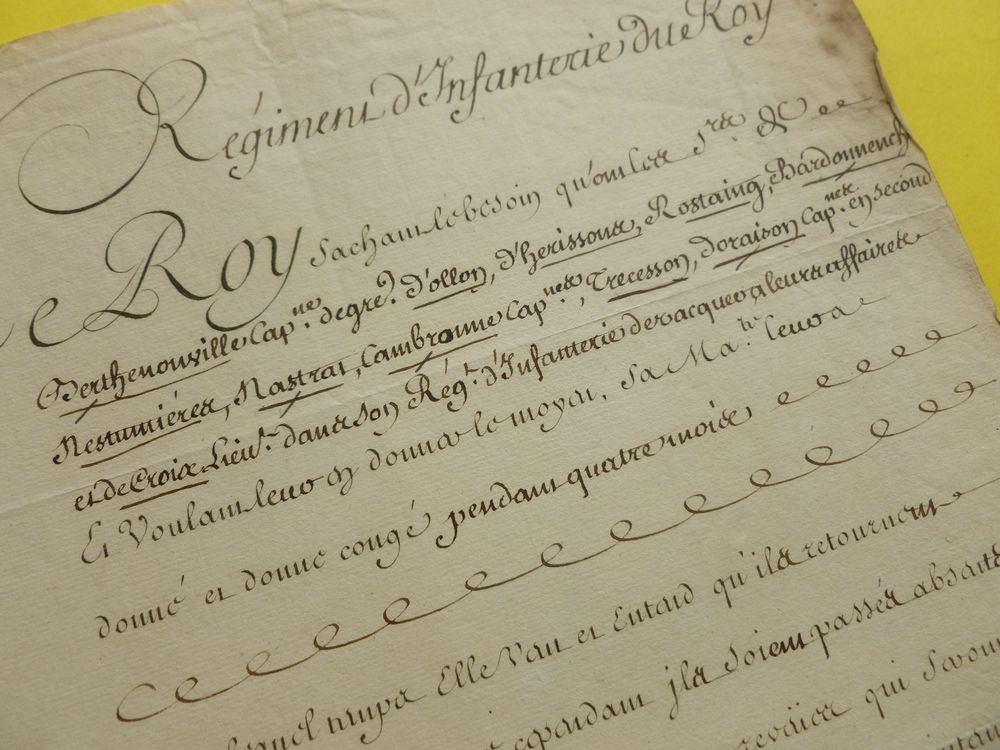 Régiment d'Infanterie du Roy
Le Roy sachant le besoin qu'ont les Srs. De
Berthenonville Capne. de gre. d'ollon, d'herissons, Rostaing, Bardonnench
Nestumiéres, Nastrat, Cambronne Capnes., Trecesson, doraison Capnes. en second
et de Croix Lieut. dans son Régt. d'Infanterie de vacquer a leurs affaires
Et Voulant leur en donner le moyen, Sa Maté. leur a
donné et donne congé pendant quatre mois
lequel temps Elle Veut et Entend qu'ils retournent
cependant ils soient passés absents
reveües qui seront